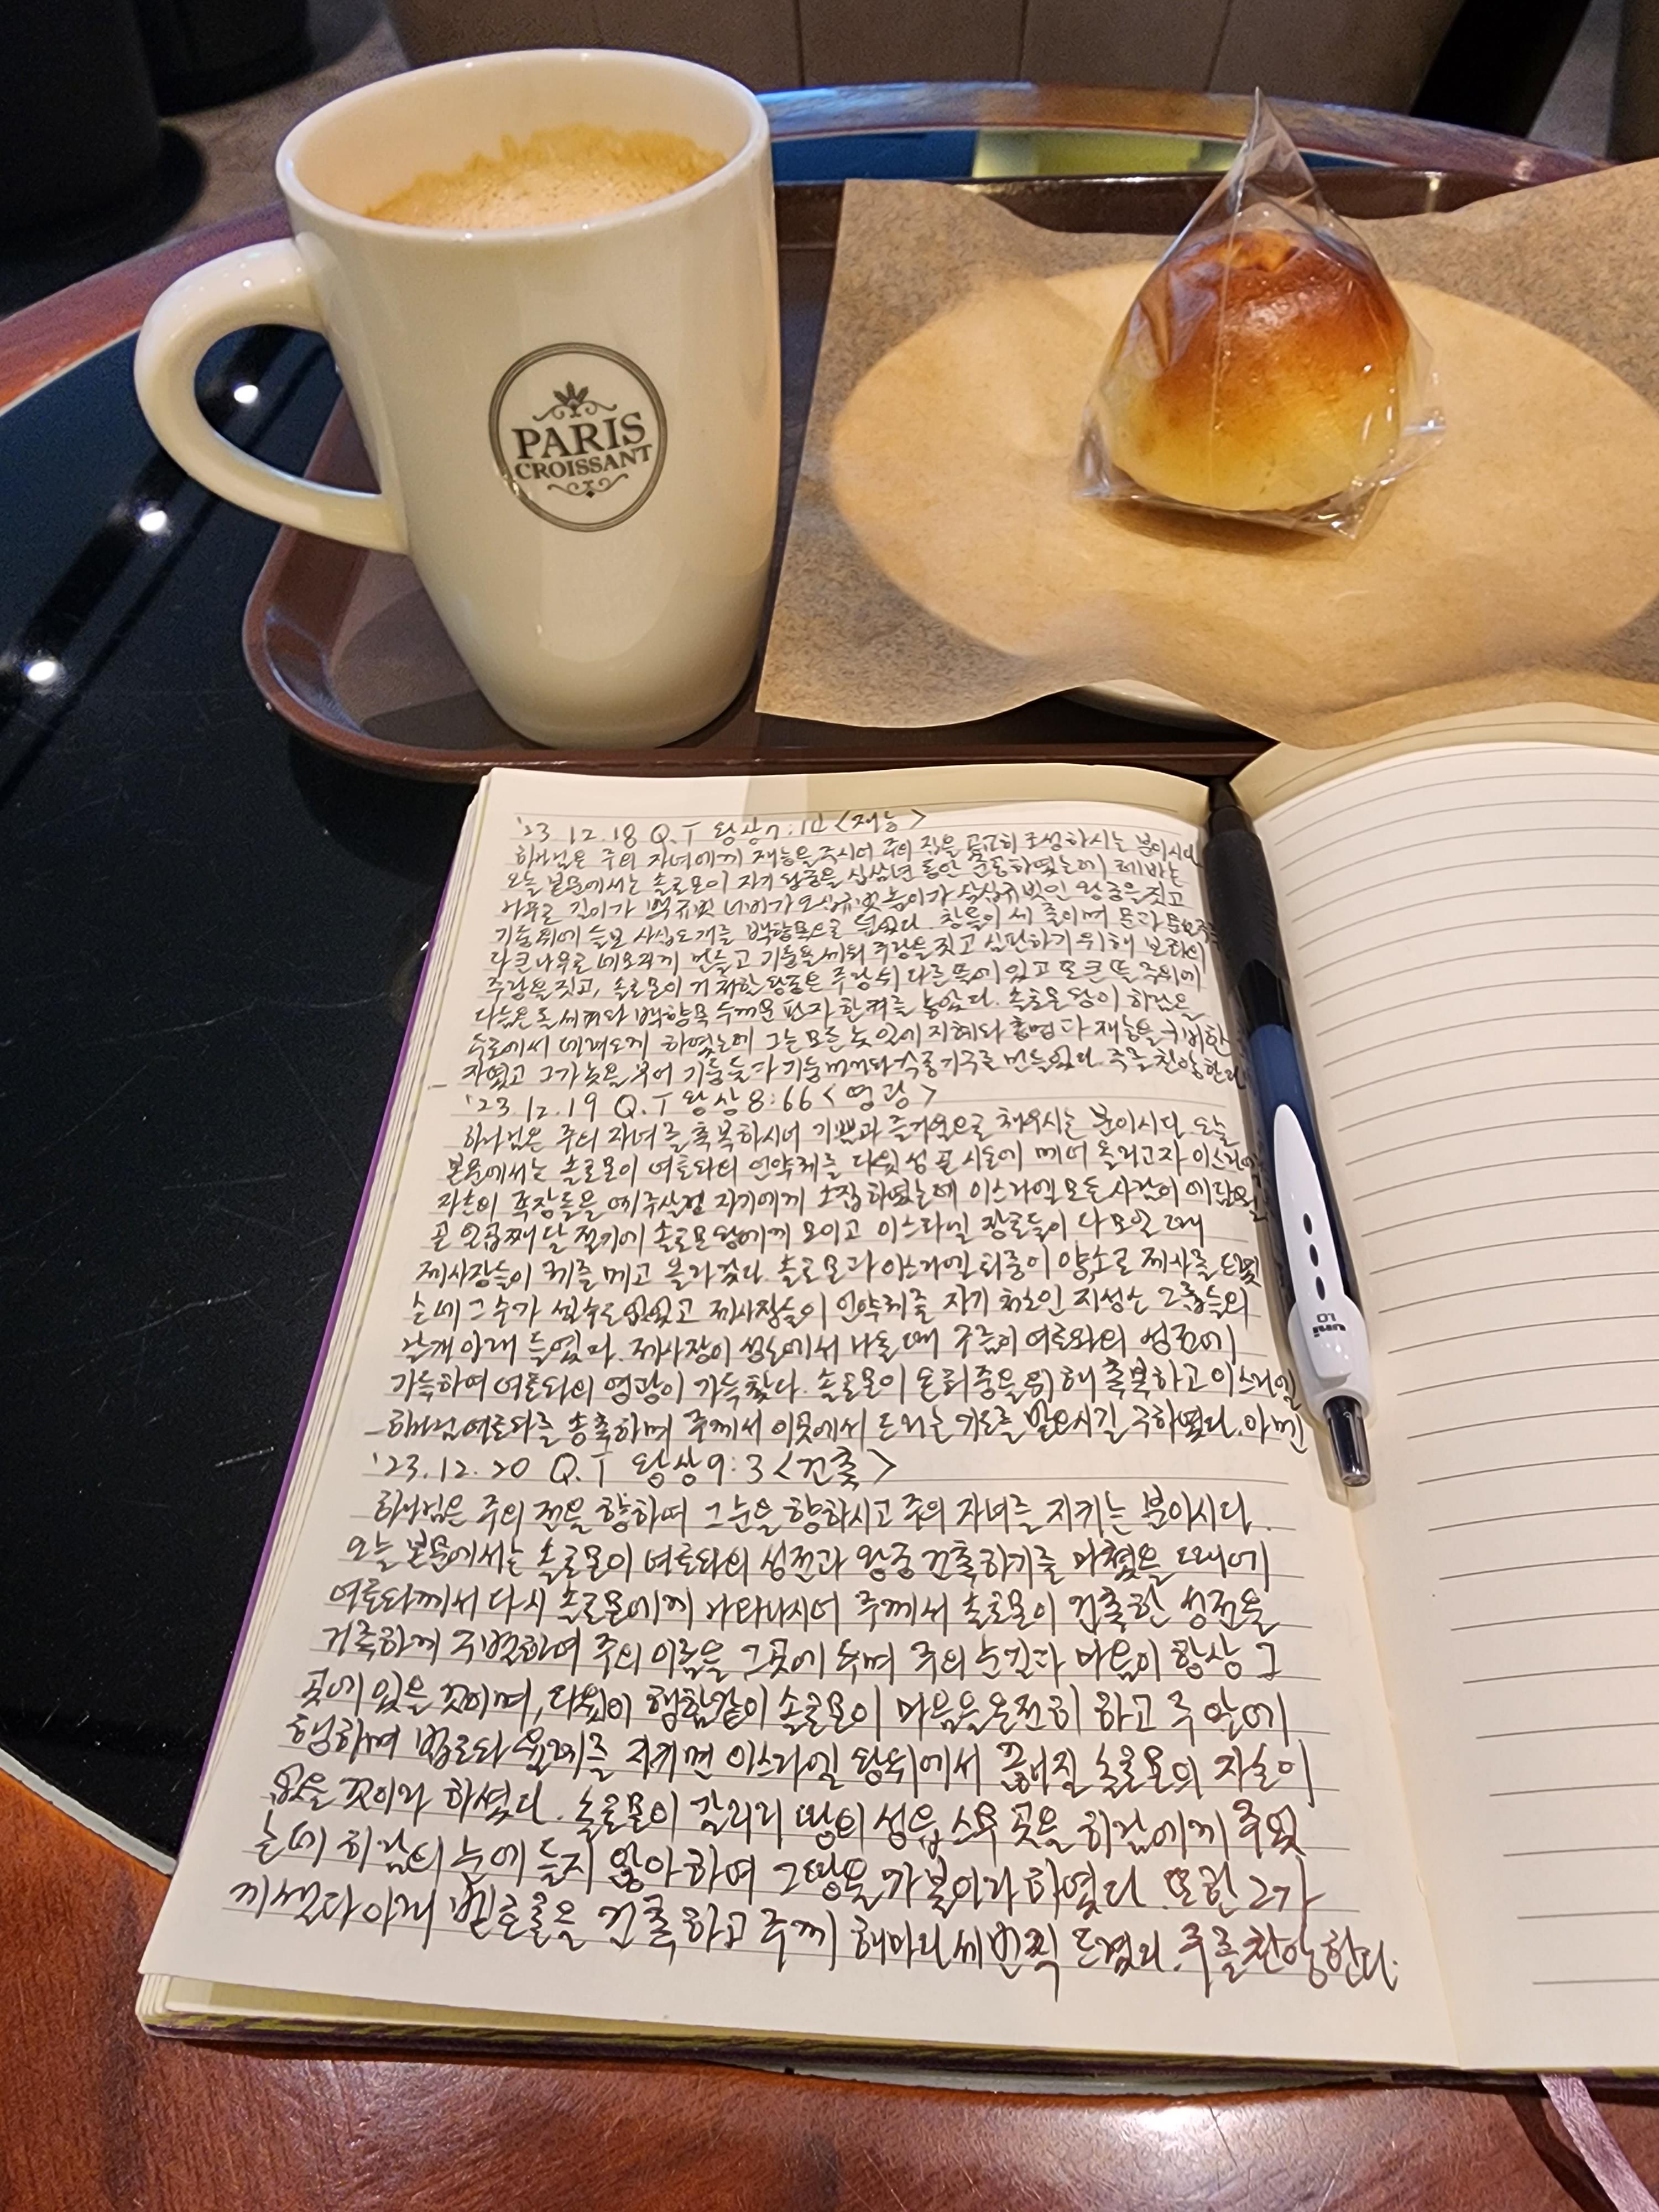 PARIS
CROISSANT
uni
1.0
'23.12.18 Q.T 왕상7:14 <재능>
하나님은 주의 자녀에게 재능을 주시어 주의 집을 조성하시는 분이시다
오늘 본문에서는 솔로몬이 자기 왕궁을 십삼년 동안 건축하였는데 레바논
나무로 길이가 백규빗 너비가 오십규빗 높이가 삼십규빗인 왕궁을 짓고
기둥 위에 들보 사십오개를 백향목으로 덮었다. 창틀이 세 줄이며 문과
다 큰 나무로 네모지게 만들고 기둥을 세워 주랑을 짓고 심판하기 위해 보좌의
주랑을 짓고, 솔로몬이 거처할 왕궁은 주랑 뒤 다른 뜰에 있고 또 큰 뜰 주위에
다듬은 돌 세켜와 백향목 두꺼운 판자 한켜를 놓았다. 솔로몬 왕이 히람을
두로에서 데려오게 하였는데 그는 모든 놋 일에 지혜와 총명과 재능을 구비한
자였고 그가 놋을 부어 기둥 만들었다. 주를 찬양한다
'23.12.19 Q.T 왕상8:66 <영광>
하나님은 주의 자녀를 축복하시어 기쁨과 즐거움으로 채우시는 분이시다. 오늘
본문에서는 솔로몬이 여호와의 언약궤를 다윗성 곧 시온에서 메어 올리고자 이스라엘
자손의 족장들을 예루살렘 자기에게 소집하였는데 이스라엘 모든 사람이 에다님월
곧 일곱째 달 절기에 솔로몬 왕에게 모이고 이스라엘 장로들이 다 모일 때에
제사장들이 궤를 메고 올라갔다. 솔로몬과 이스라엘 회중이 양, 소로 제사를 드렸
는데 그 수가 셀 수도 없었고 제사장들이 언약궤를 자기 처소인 지성소 그룹들의
날개 아래 들였다. 제사장이 성소에서 나올 때에 구름이 여호와의 성전에
가득하여 여호와의 영광이 가득 찼다. 솔로몬이 온 회중을 위해 축복하고 이스라엘
하나님 여호와를 송축하며 주께서 이곳에서 드리는 기도를 들으시길 구하였다. 아멘
'23.12.20 Q.T 왕상9:3 <건축>
하나님은 주의 전을 향하여 그 눈을 향하시고 주의 자녀를 지키는 분이시다.
오늘 본문에서는 솔로몬이 여호와의 성전과 왕궁 건축하기를 마쳤을 때에
여호와께서 다시 솔로몬에게 나타나시어 주께서 솔로몬이 건축한 성전을
거룩하게 구별하여 주의 이름을 그곳에 두며 주의 눈길과 마음이 항상 그
곳에 있을 것이며, 다윗이 행함같이 솔로몬이 마음을 온전히 하고 주 앞에
행하며 법도와 율례를 지키면 이스라엘 왕위에서 끊어질 솔로몬의 자손이
없을 것이라 하셨다. 솔로몬이 갈릴리 땅의 성읍 스무 곳을 히람에게 주었
는데 히람의 눈에 들지 않아 하여 그 땅을 가불이라 하였다. 또한 그가
게셀과 아래 벧호론을 건축하고 주께 해마다 세번씩 드렸다. 주를 찬양한다.